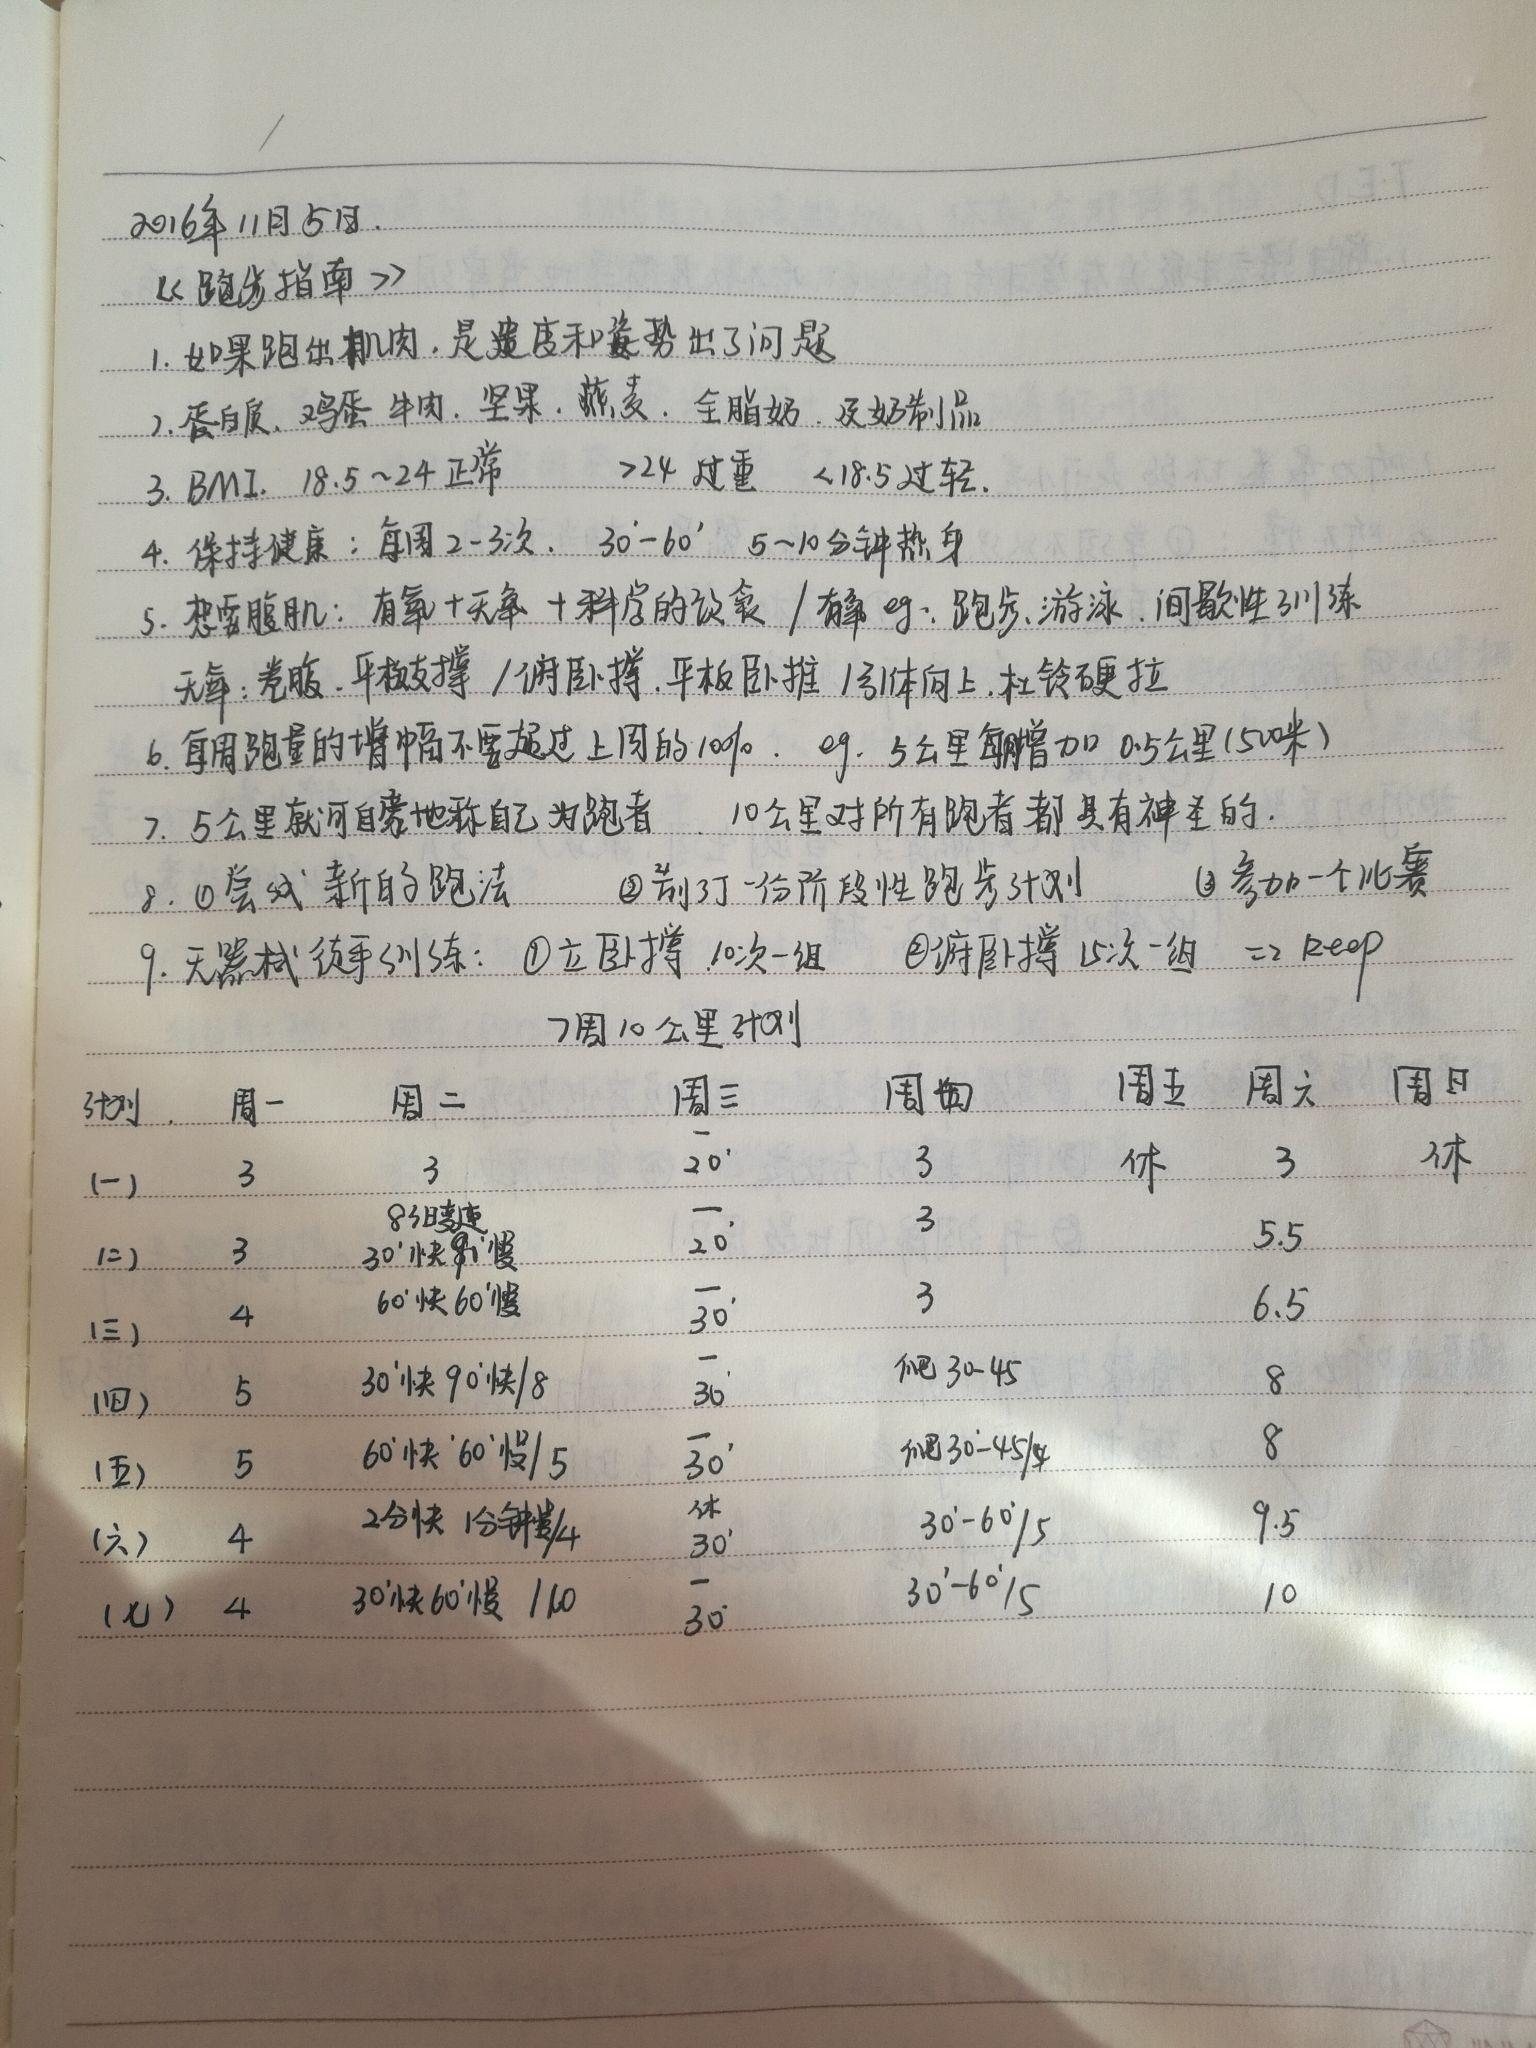 2016年11月5日.
《跑步指南》
1. 如果跑出肌肉.是速度和姿势出了问题
2. 蛋白质、鸡蛋 牛肉. 坚果. 燕麦. 全脂奶. 及奶制品
3. BMI. 18.5~24正常 >24 过重 <18.5过轻.
4. 保持健康: 每周2-3次. 30'-60' 5~10分钟热身
5. 想要腹肌: 有氧+无氧 +科学的饮食 / 有氧 eg: 跑步、游泳. 间歇性训练
无氧: 卷腹. 平板支撑 / 俯卧撑. 平板卧推 / 引体向上. 杠铃硬拉
6. 每周跑量的增幅不要超过上周的10%. eg. 5公里每周增加 0.5公里(500米)
7. 5公里就可自豪地称自己为跑者. 10公里对所有跑者都具有神圣的.
8. ①尝试新的跑法 ②制订一份阶段性跑步计划 ③参加一个比赛
9. 无器械徒手训练: ①立卧撑 10次一组 ②俯卧撑 15次一组 => Keep
7周10公里计划
计划. 周一 周二 周三 周四 周五 周六 周日
(一) 3 3 — 20' 3 休 3 休
(二) 3 8组变速 30'快 慢 — 20' 3 5.5
(三) 4 60'快60'慢 — 30' 3 6.5
(四) 5 30'快90'快/8 — 30' 爬30-45 8
(五) 5 60'快'60'慢/5 — 30' 爬30'-45/4 8
(六) 4 2分快 1分钟慢/4 休 30' 30'-60'/5 9.5
(七) 4 30'快60'慢 /10 — 30' 30'-60'/5 10